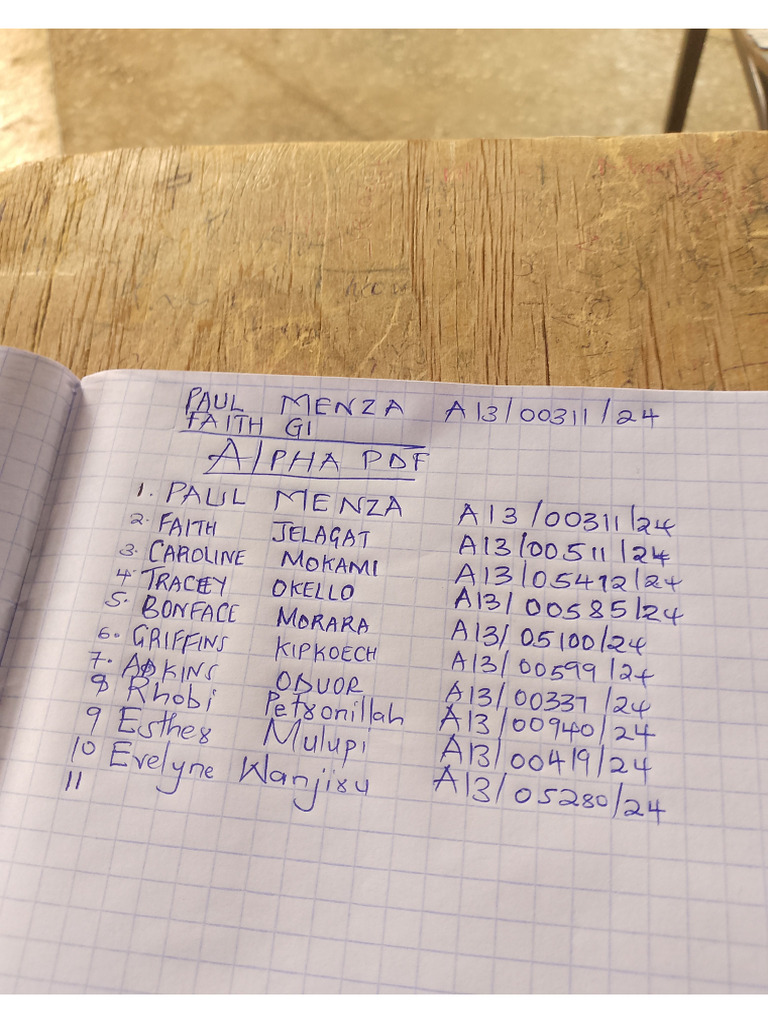 PAUL MENZA A13/00311/24
FAITH GI
ALPHA PDF
1. PAUL MENZA A13/00311/24
2. FAITH JELAGAT A13/00511/24
3. CAROLINE MOKAMI A13/05412/24
4. TRACEY OKELLO A13/00585/24
5. BONFACE MORARA A13/05100/24
6. GRIFFINS KIPKOECH A13/00599/24
7. ADKINS ODUOR A13/00337/24
8 Rhobi Petronillah A13/00940/24
9 Esther Mulupi A13/00419/24
10 Evelyne Wanjiru A13/05280/24
11